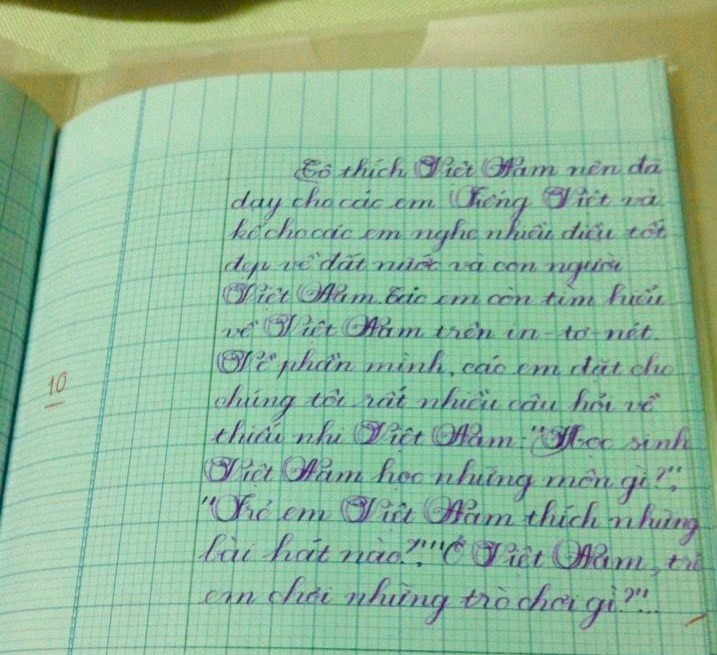 Cô thích Việt Nam nên đã
dạy cho các em Tiếng Việt và
kể cho các em nghe nhiều điều tốt
đẹp về đất nước và con người
Việt Nam. Các em còn tìm hiểu
về Việt Nam trên in-tơ-nét.
Về phần mình, các em đặt cho
10
chúng tôi rất nhiều câu hỏi về
thiếu nhi Việt Nam: "Học sinh
Việt Nam học những môn gì?",
"Trẻ em Việt Nam thích những
bài hát nào?", "Ở Việt Nam, trẻ
em chơi những trò chơi gì?"...